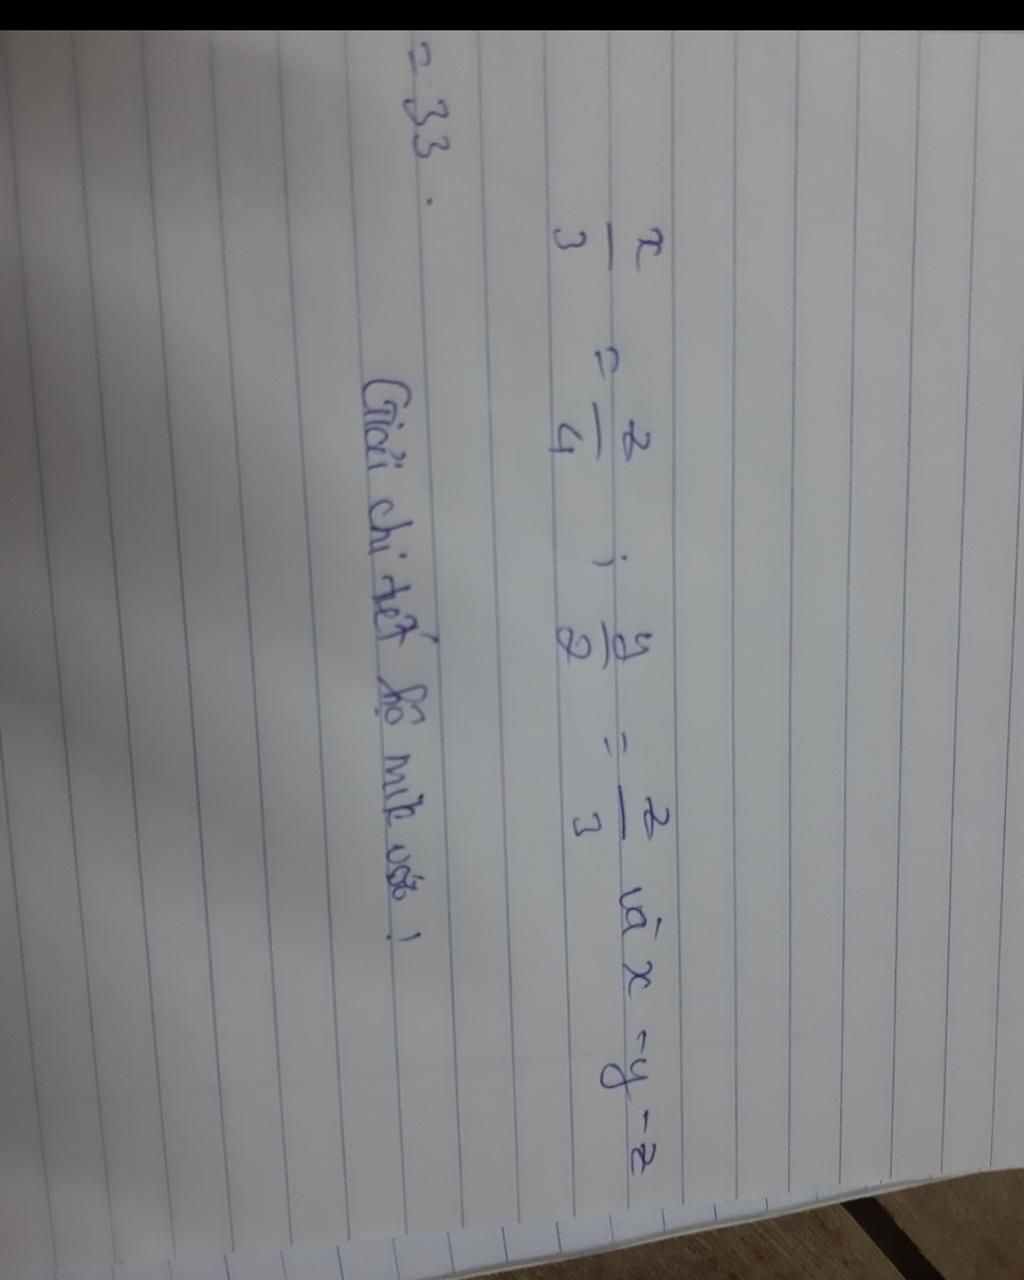 x/3 = z/4 ; y/2 = z/3 và x - y - z
= 33.
(Giải chi tiết hộ mik với!